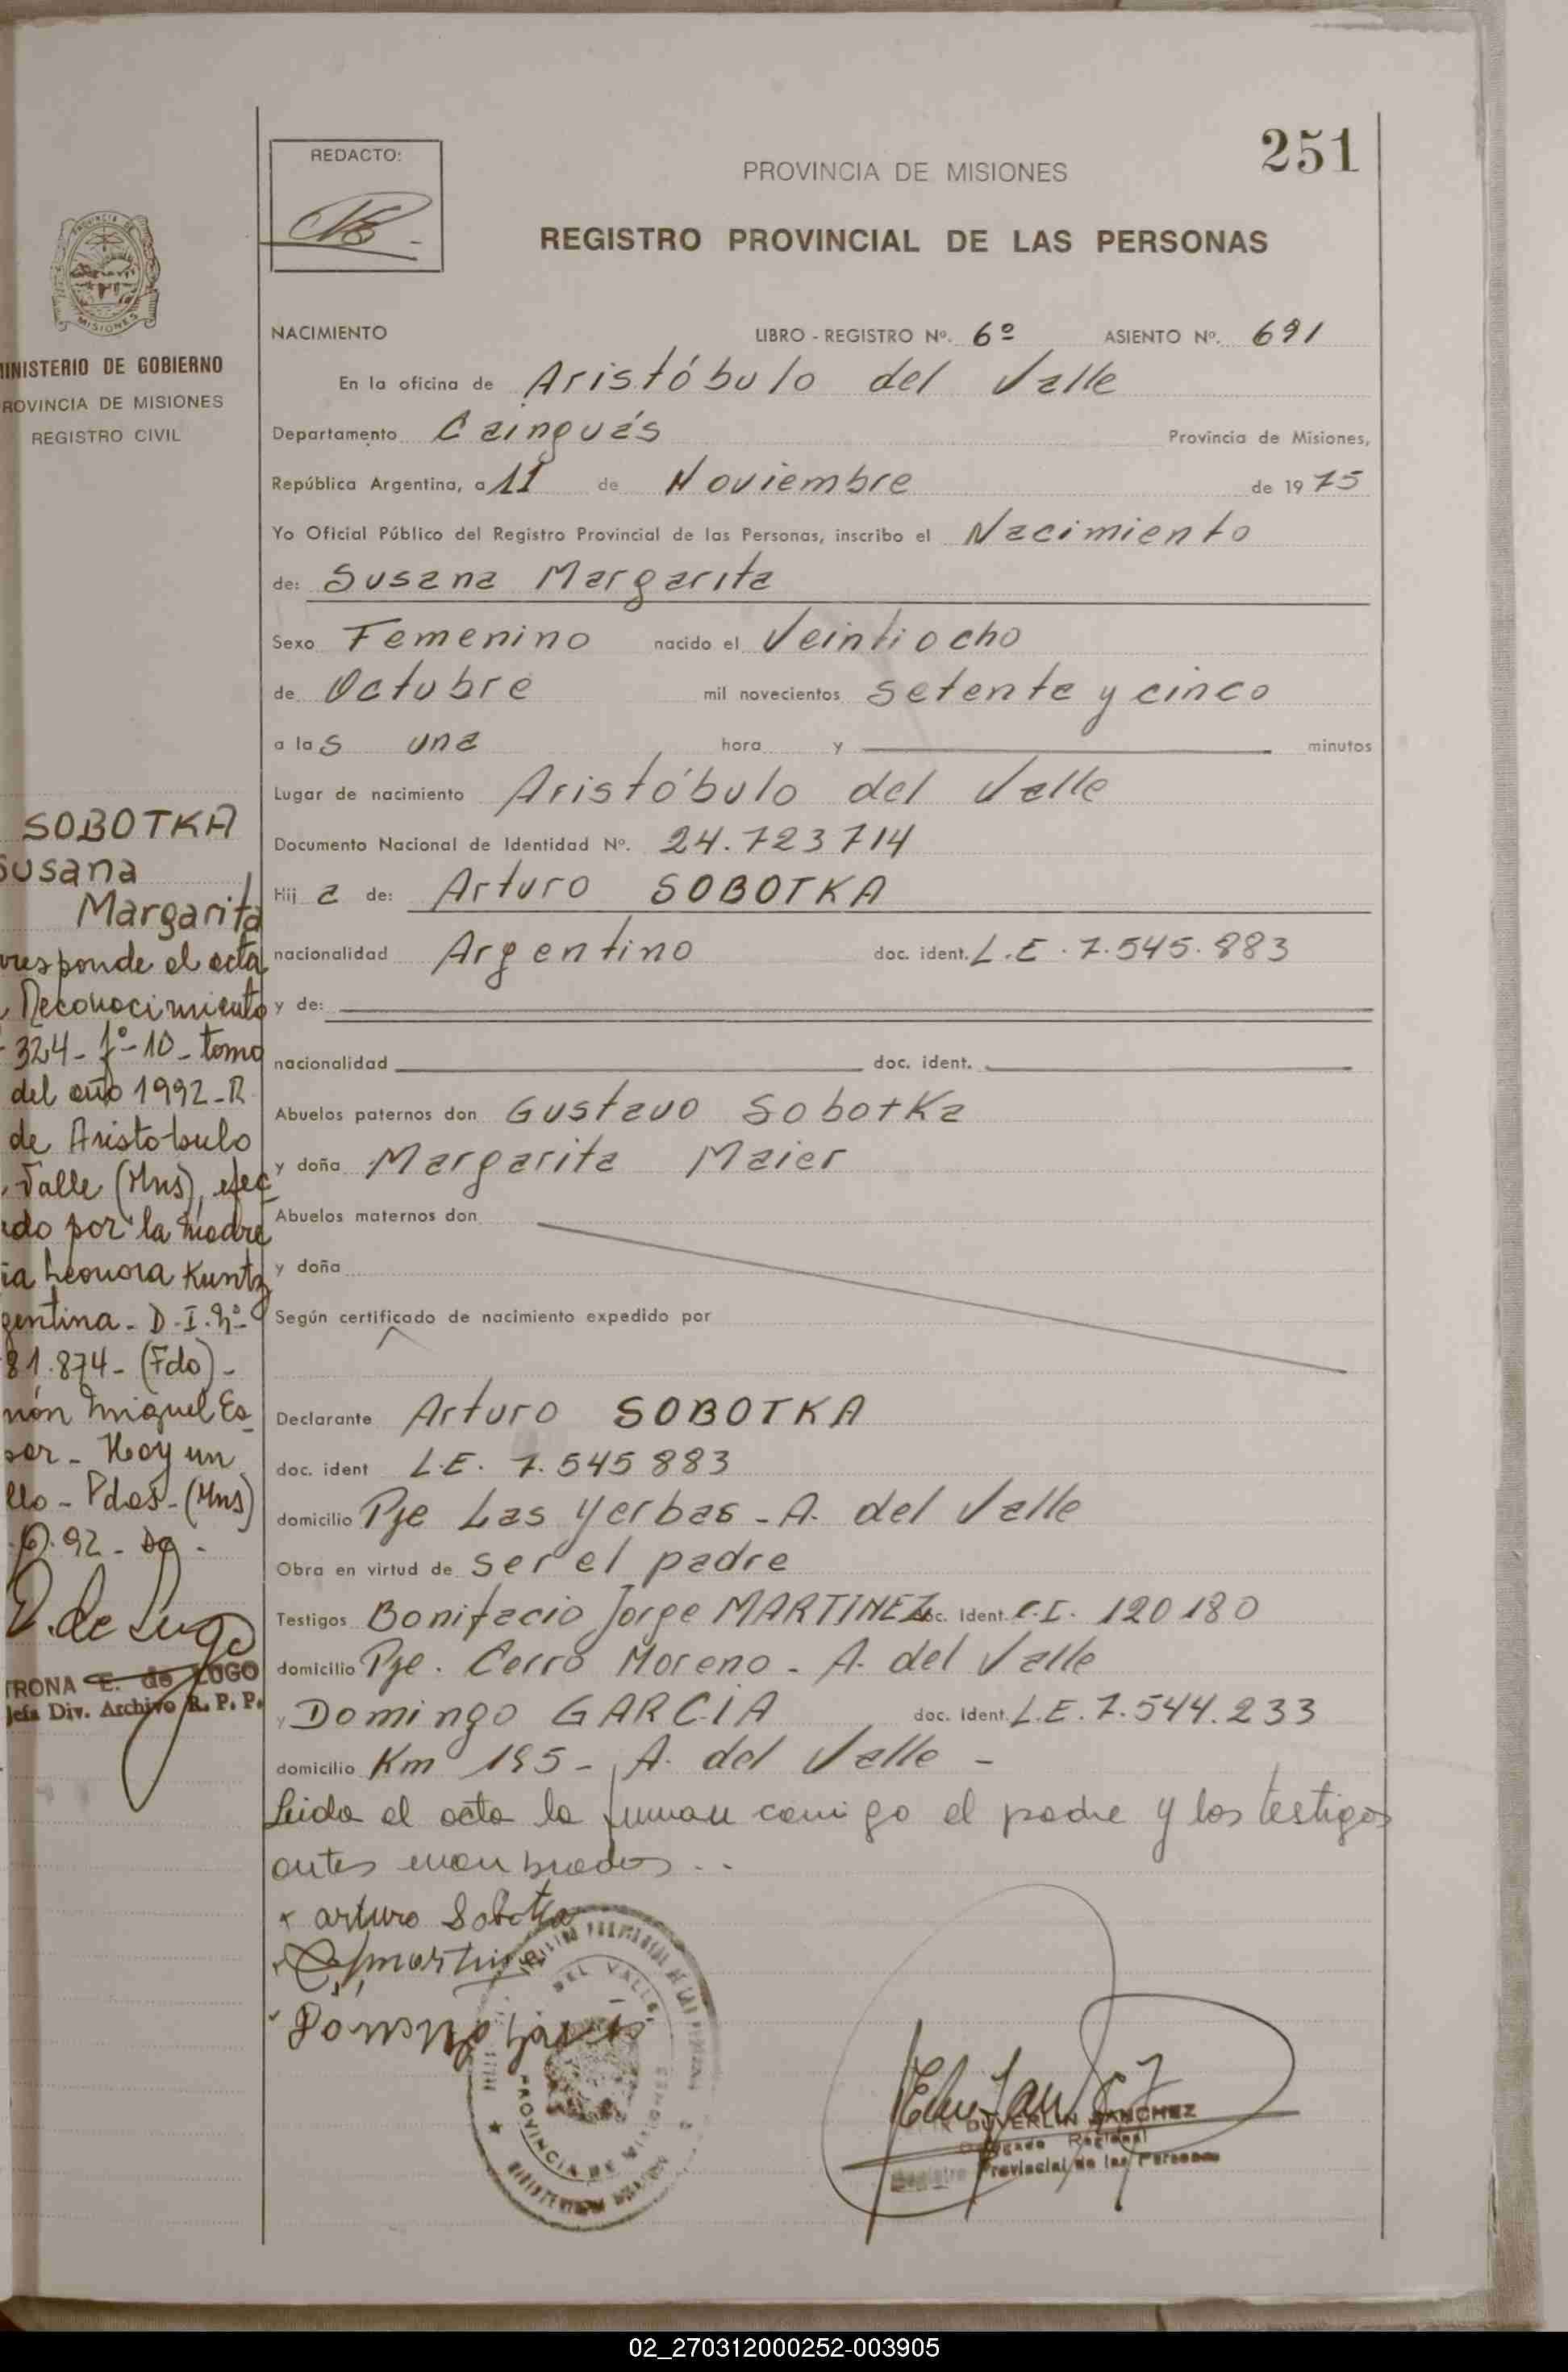 251
REDACTO:
PROVINCIA DE MISIONES
REGISTRO PROVINCIAL DE LAS PERSONAS
MISIONES
MINISTERIO DE GOBIERNO
PROVINCIA DE MISIONES
REGISTRO CIVIL
NACIMIENTO LIBRO - REGISTRO Nº. 6º ASIENTO Nº. 691
En la oficina de Aristóbulo del Valle
Departamento Cainguás Provincia de Misiones,
República Argentina, a 11 de Noviembre de 1975
Yo Oficial Público del Registro Provincial de las Personas, inscribo el Nacimiento
de: Susana Margarita
Sexo Femenino nacido el Veintiocho
de Octubre mil novecientos setenta y cinco
a las una hora y minutos
Lugar de nacimiento Aristóbulo del Valle
Documento Nacional de Identidad Nº. 24.723714
Hija de: Arturo SOBOTKA
nacionalidad Argentino doc. ident. L.E. 7.545.883
y de:
nacionalidad doc. ident.
Abuelos paternos don Gustavo Sobotka
y doña Margarita Maier
Abuelos maternos don
y doña
Según certificado de nacimiento expedido por
Declarante Arturo SOBOTKA
doc. ident L.E. 7.545883
domicilio Pje Las Yerbas - A. del Valle
Obra en virtud de ser el padre
Testigos Bonifacio Jorge MARTINEZ doc. Ident. C.I. 120180
domicilio Pje. Cerro Moreno - A. del Valle
y Domingo GARCIA doc. Ident. L.E. 7.544.233
domicilio Km 195 - A. del Valle -
Leida el acta la firman conmigo el padre y los testigos
antes nombrados..
arturo Sobotka
DEL VALLE
PROVINCIA DE
DUVERLIN SANCHEZ
Delegado Regional
Registro Provincial de las Personas
SOBOTKA
Susana
Margarita
rresponde el acta
Reconocimiento
324 - fº - 10 - tomo
del año 1992 - R.
de Aristobulo
Valle (Mns), efec
ado por la madre
ia Leonora Kuntz
gentina - D.I. Nº
81.874 - (Fdo) -
món Miguel Es
Hoy un
llo - Pdas - (Mns)
92
E. de Lugo
TRONA E. de LUGO
Jefa Div. Archivo R. P. P.
02_270312000252-003905